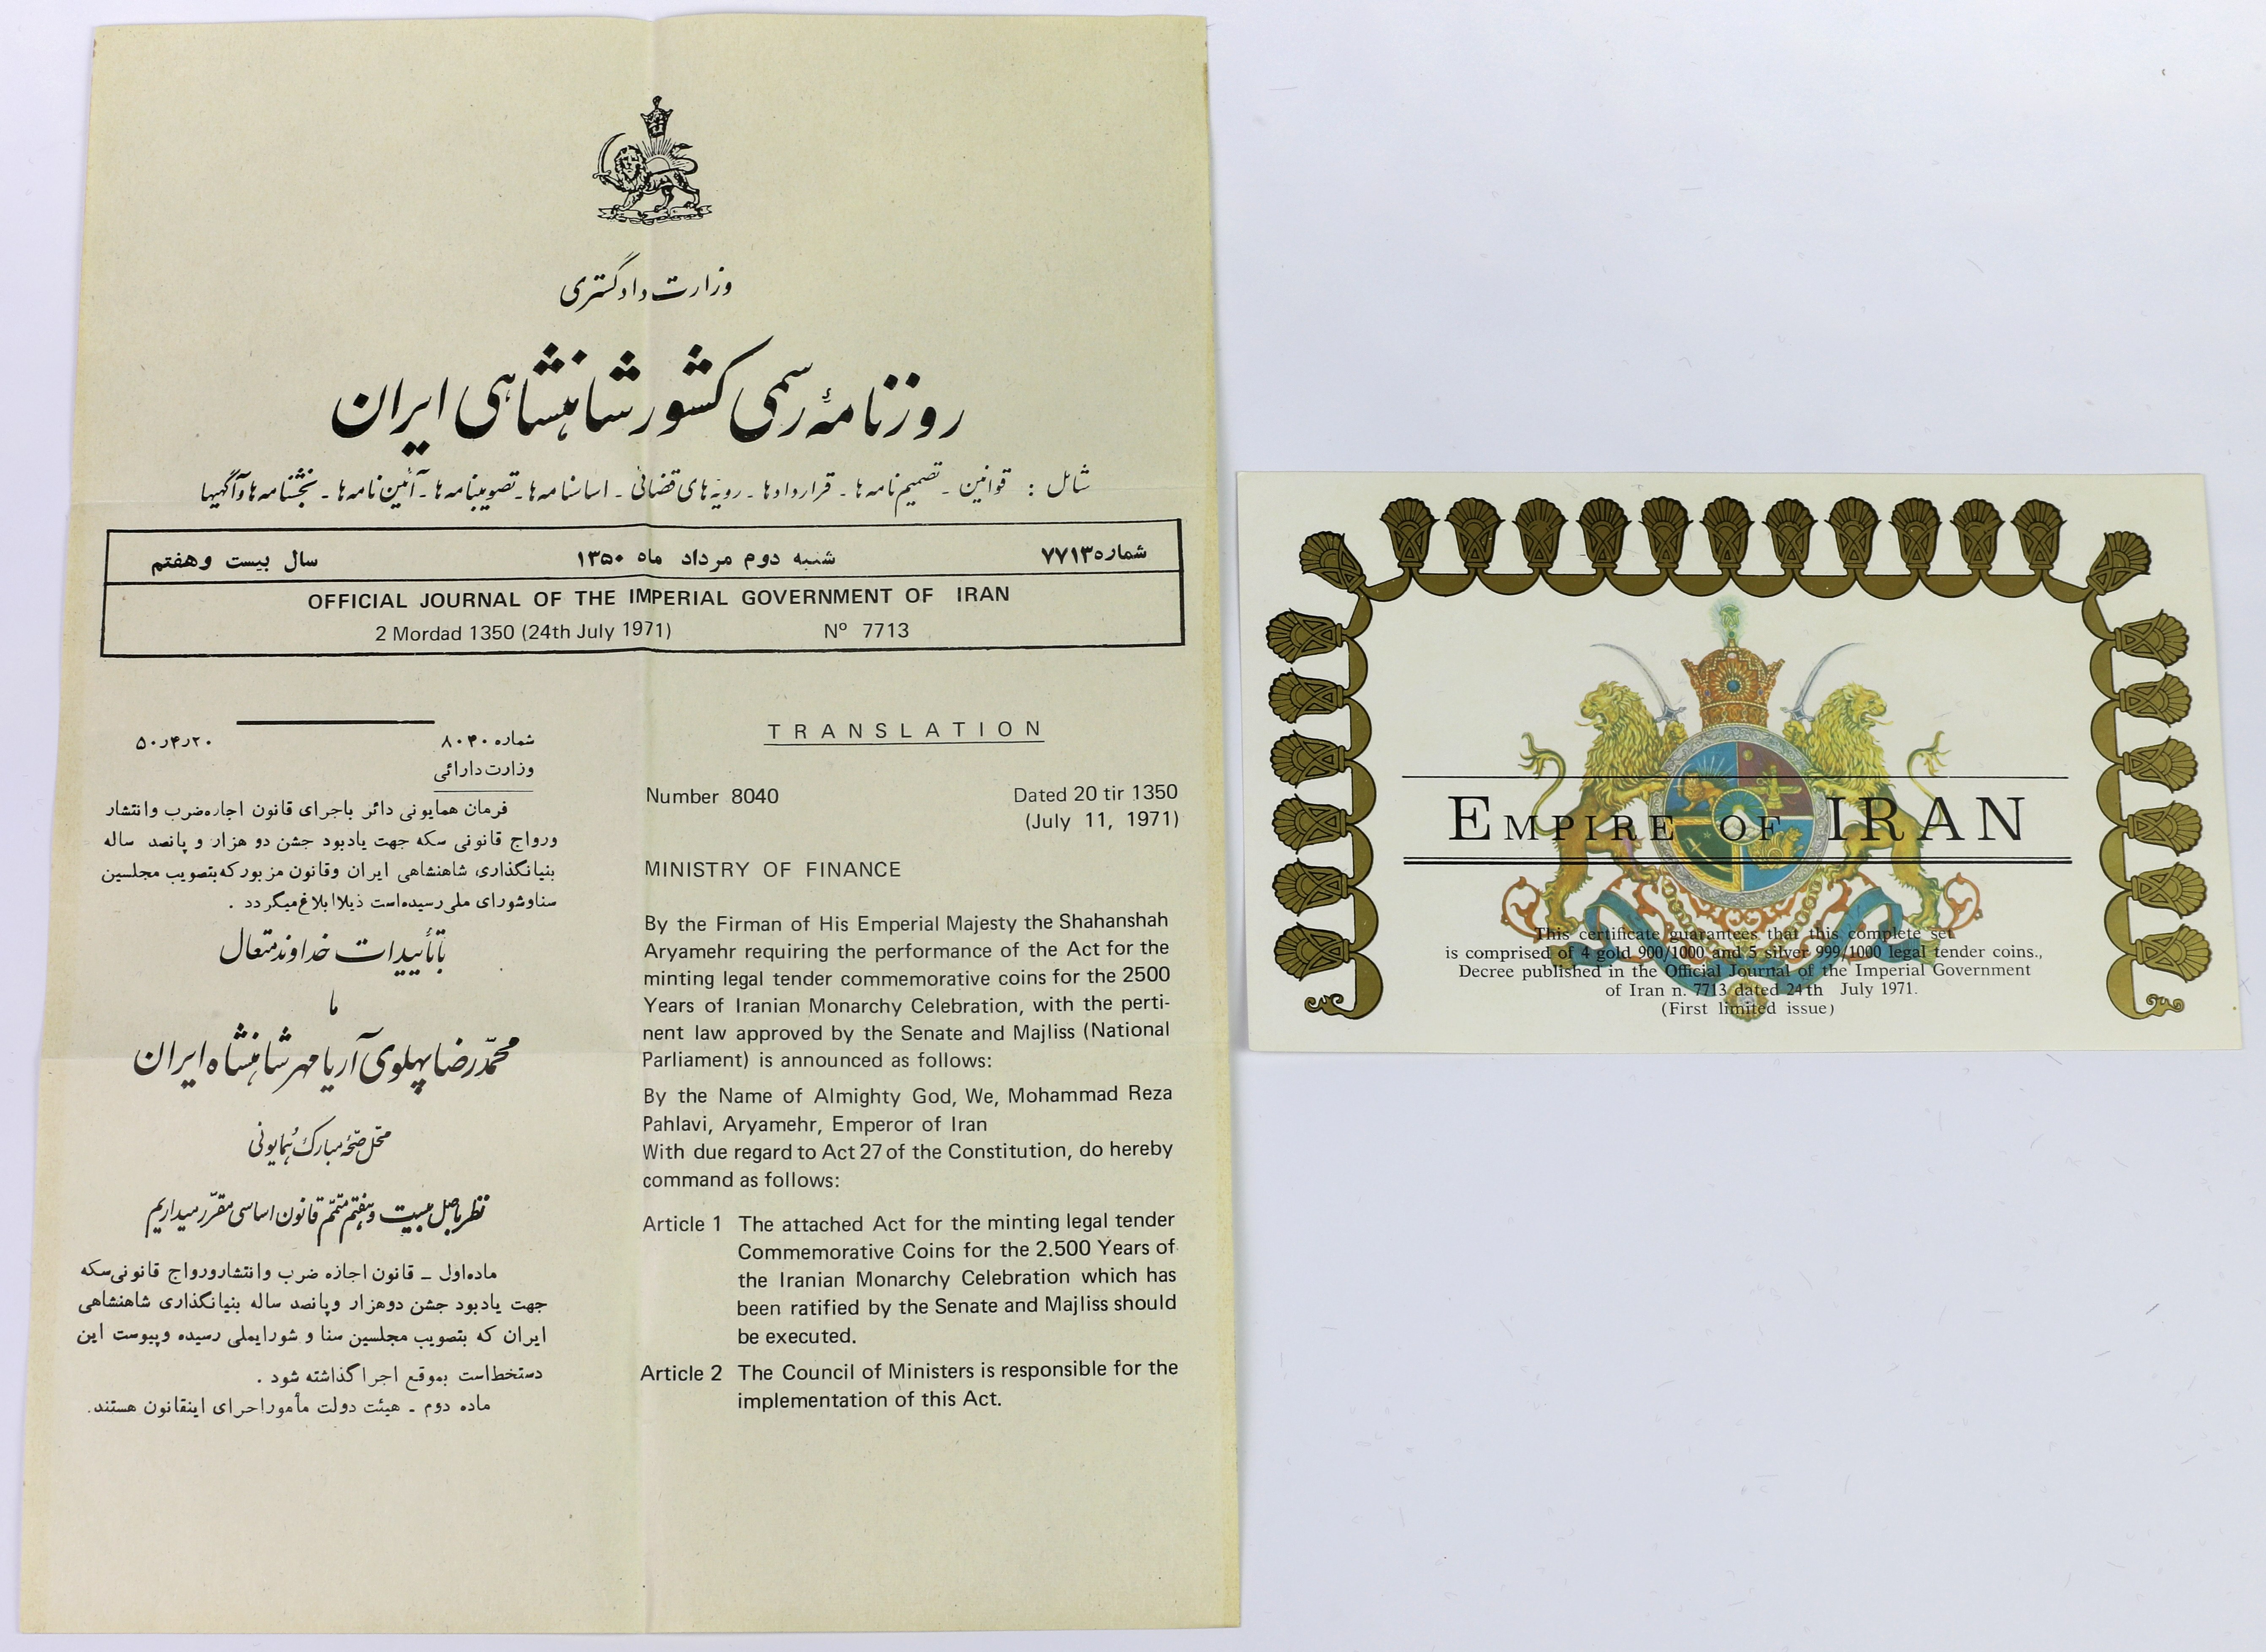 وزارت دادگستری
روزنامهٔ رسمی کشور شاهنشاهی ایران
شامل : قوانین ـ تصمیم نامه‌ها ـ قراردادها ـ رویه‌های قضائی ـ اساسنامه‌ها ـ تصویبنامه‌ها ـ آئین نامه‌ها ـ بخشنامه‌ها و آگهیها
شماره ۷۷۱۳ شنبه دوم مرداد ماه ۱۳۵۰ سال بیست و هفتم
OFFICIAL JOURNAL OF THE IMPERIAL GOVERNMENT OF IRAN
2 Mordad 1350 (24th July 1971) Nº 7713
شماره ۸۰۴۰ ۲۰ر۴ر۵۰
وزارت دارائی
فرمان همایونی دائر باجرای قانون اجازه ضرب وانتشار
ورواج قانونی سکه جهت یادبود جشن دو هزار و پانصد ساله
بنیانگذاری شاهنشاهی ایران وقانون مزبور که بتصویب مجلسین
سنا وشورای ملی رسیده است ذیلا ابلاغ میگردد .
با تأییدات خداوند متعال
ما
محمّدرضا پهلوی آریامهر شاهنشاه ایران
محل صحّهٔ مبارک همایونی
نظر باصل بیست و هفتم متمّم قانون اساسی مقرّر میداریم
ماده اول ـ قانون اجازه ضرب وانتشار ورواج قانونی سکه
جهت یادبود جشن دوهزار وپانصد ساله بنیانگذاری شاهنشاهی
ایران که بتصویب مجلسین سنا و شورایملی رسیده وپیوست این
دستخط است بموقع اجرا گذاشته شود .
ماده دوم ـ هیئت دولت مأمور اجرای اینقانون هستند.
TRANSLATION
Number 8040 Dated 20 tir 1350
(July 11, 1971)
MINISTRY OF FINANCE
By the Firman of His Emperial Majesty the Shahanshah
Aryamehr requiring the performance of the Act for the
minting legal tender commemorative coins for the 2500
Years of Iranian Monarchy Celebration, with the perti-
nent law approved by the Senate and Majliss (National
Parliament) is announced as follows:
By the Name of Almighty God, We, Mohammad Reza
Pahlavi, Aryamehr, Emperor of Iran
With due regard to Act 27 of the Constitution, do hereby
command as follows:
Article 1 The attached Act for the minting legal tender
Commemorative Coins for the 2.500 Years of
the Iranian Monarchy Celebration which has
been ratified by the Senate and Majliss should
be executed.
Article 2 The Council of Ministers is responsible for the
implementation of this Act.
EMPIRE OF IRAN
This certificate guarantees that this complete set
is comprised of 4 gold 900/1000 and 5 silver 999/1000 legal tender coins.,
Decree published in the Official Journal of the Imperial Government
of Iran n. 7713 dated 24th July 1971.
(First limited issue)